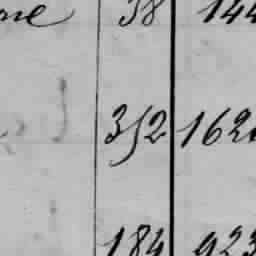 38 144
352 162
184 923